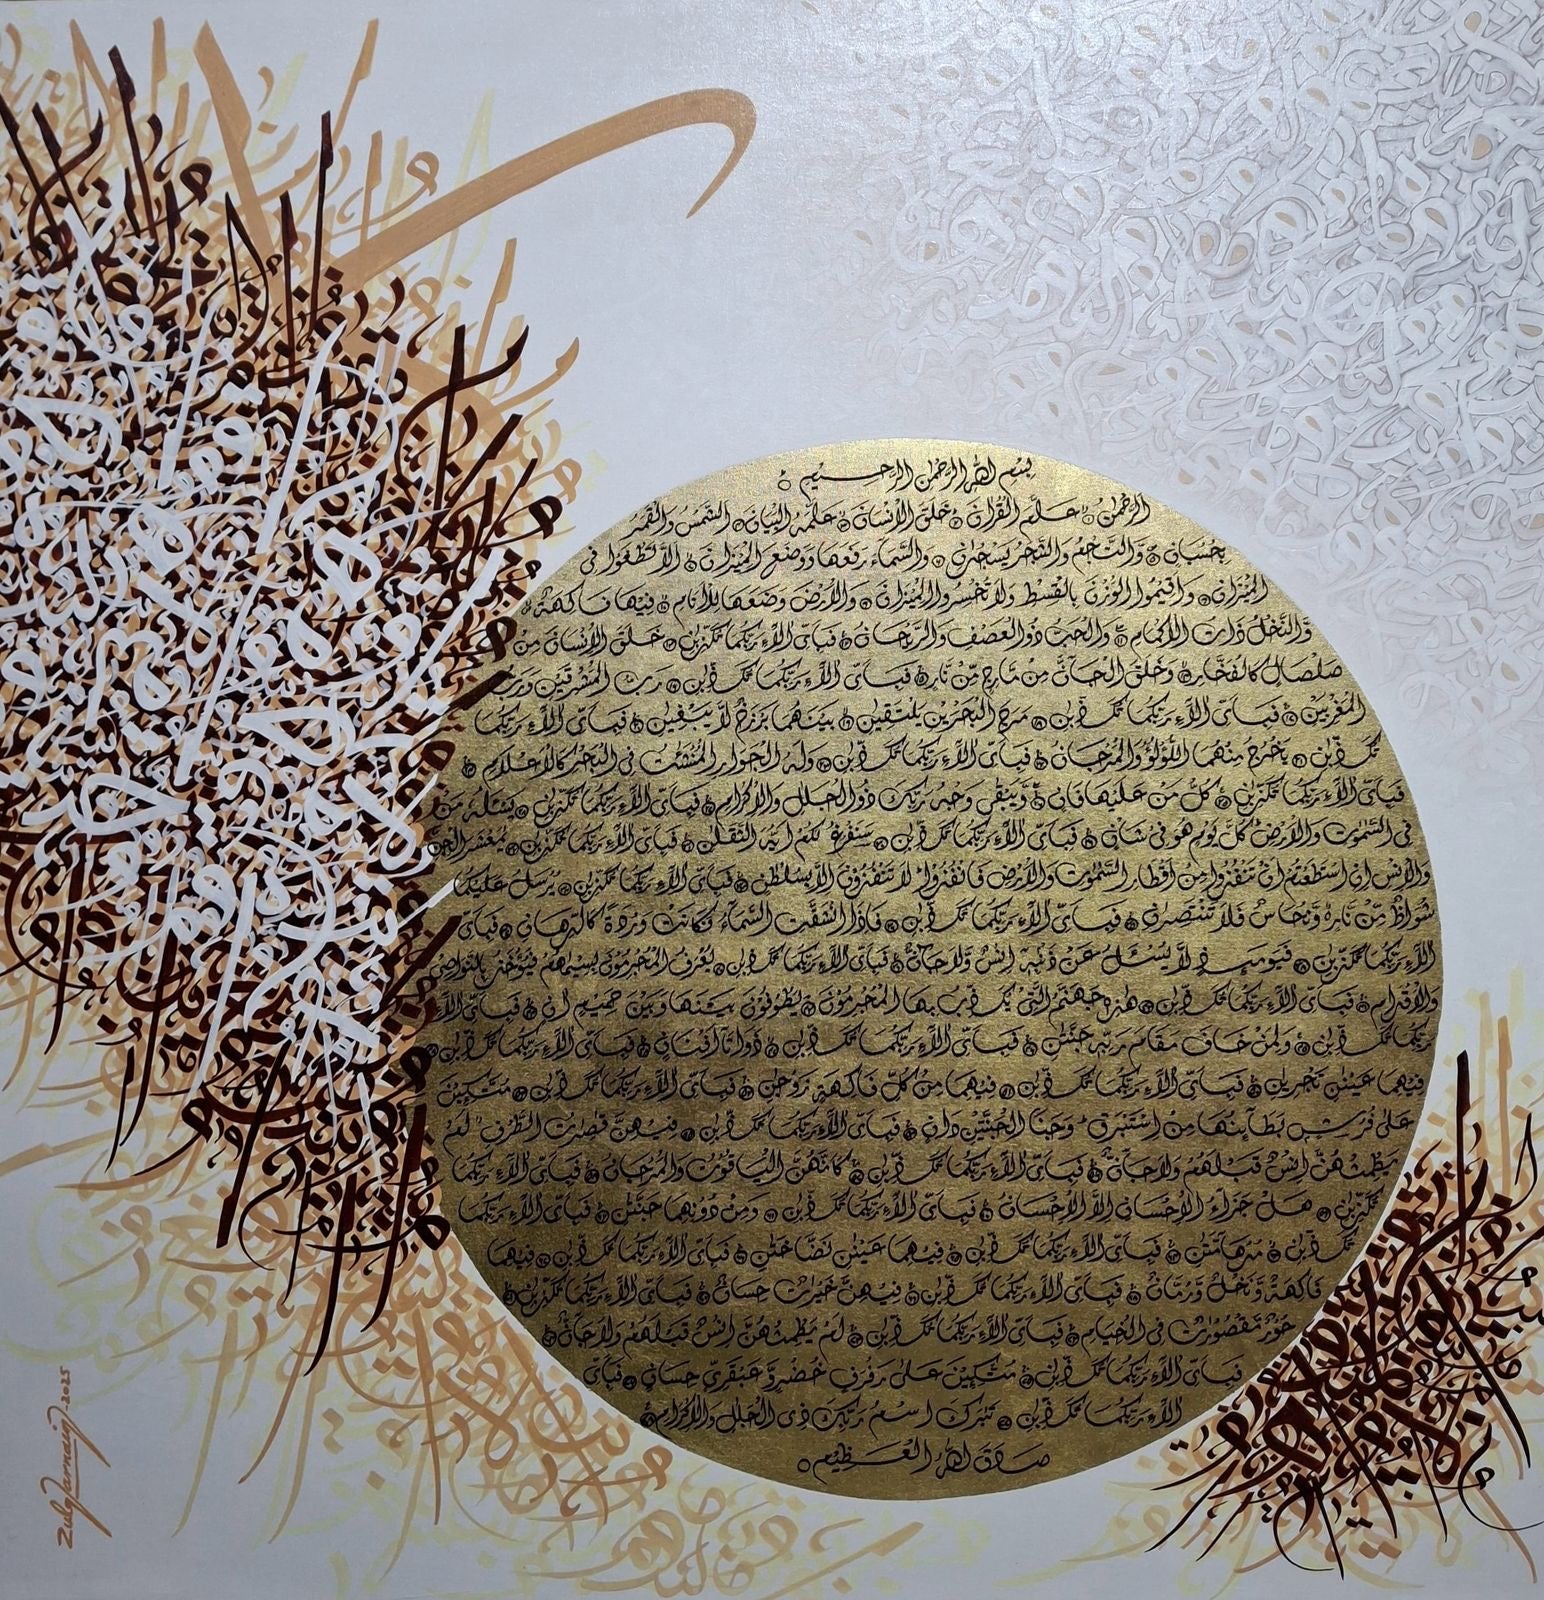 بِسْمِ اللهِ الرَّحْمٰنِ الرَّحِيْمِ
الرَّحْمٰنُ عَلَّمَ الْقُرْاٰنَ خَلَقَ الْاِنْسَانَ عَلَّمَهُ الْبَيَانَ الشَّمْسُ وَالْقَمَرُ
بِحُسْبَانٍ وَّالنَّجْمُ وَالشَّجَرُ يَسْجُدٰنِ وَالسَّمَآءَ رَفَعَهَا وَوَضَعَ الْمِيْزَانَ اَلَّا تَطْغَوْا فِى
الْمِيْزَانِ وَاَقِيْمُوا الْوَزْنَ بِالْقِسْطِ وَلَا تُخْسِرُوا الْمِيْزَانَ وَالْاَرْضَ وَضَعَهَا لِلْاَنَامِ فِيْهَا فَاكِهَةٌ
وَّالنَّخْلُ ذَاتُ الْاَكْمَامِ وَالْحَبُّ ذُو الْعَصْفِ وَالرَّيْحَانُ فَبِاَىِّ اٰلَآءِ رَبِّكُمَا تُكَذِّبٰنِ خَلَقَ الْاِنْسَانَ مِنْ
صَلْصَالٍ كَالْفَخَّارِ وَخَلَقَ الْجَآنَّ مِنْ مَّارِجٍ مِّنْ نَّارٍ فَبِاَىِّ اٰلَآءِ رَبِّكُمَا تُكَذِّبٰنِ رَبُّ الْمَشْرِقَيْنِ وَرَبُّ
الْمَغْرِبَيْنِ فَبِاَىِّ اٰلَآءِ رَبِّكُمَا تُكَذِّبٰنِ مَرَجَ الْبَحْرَيْنِ يَلْتَقِيٰنِ بَيْنَهُمَا بَرْزَخٌ لَّا يَبْغِيٰنِ فَبِاَىِّ اٰلَآءِ رَبِّكُمَا
تُكَذِّبٰنِ يَخْرُجُ مِنْهُمَا اللُّؤْلُؤُ وَالْمَرْجَانُ فَبِاَىِّ اٰلَآءِ رَبِّكُمَا تُكَذِّبٰنِ وَلَهُ الْجَوَارِ الْمُنْشَئٰتُ فِى الْبَحْرِ كَالْاَعْلَامِ
فَبِاَىِّ اٰلَآءِ رَبِّكُمَا تُكَذِّبٰنِ كُلُّ مَنْ عَلَيْهَا فَانٍ وَّيَبْقٰى وَجْهُ رَبِّكَ ذُو الْجَلٰلِ وَالْاِكْرَامِ فَبِاَىِّ اٰلَآءِ رَبِّكُمَا تُكَذِّبٰنِ يَسْئَلُهُ مَنْ
فِى السَّمٰوٰتِ وَالْاَرْضِ كُلَّ يَوْمٍ هُوَ فِىْ شَاْنٍ فَبِاَىِّ اٰلَآءِ رَبِّكُمَا تُكَذِّبٰنِ سَنَفْرُغُ لَكُمْ اَيُّهَ الثَّقَلٰنِ فَبِاَىِّ اٰلَآءِ رَبِّكُمَا تُكَذِّبٰنِ يٰمَعْشَرَ الْجِنِّ
وَالْاِنْسِ اِنِ اسْتَطَعْتُمْ اَنْ تَنْفُذُوْا مِنْ اَقْطَارِ السَّمٰوٰتِ وَالْاَرْضِ فَانْفُذُوْا لَا تَنْفُذُوْنَ اِلَّا بِسُلْطٰنٍ فَبِاَىِّ اٰلَآءِ رَبِّكُمَا تُكَذِّبٰنِ يُرْسَلُ عَلَيْكُمَا
شُوَاظٌ مِّنْ نَّارٍ وَّنُحَاسٌ فَلَا تَنْتَصِرٰنِ فَبِاَىِّ اٰلَآءِ رَبِّكُمَا تُكَذِّبٰنِ فَاِذَا انْشَقَّتِ السَّمَآءُ فَكَانَتْ وَرْدَةً كَالدِّهَانِ فَبِاَىِّ
اٰلَآءِ رَبِّكُمَا تُكَذِّبٰنِ فَيَوْمَئِذٍ لَّا يُسْئَلُ عَنْ ذَنْبِهٖ اِنْسٌ وَّلَا جَآنٌّ فَبِاَىِّ اٰلَآءِ رَبِّكُمَا تُكَذِّبٰنِ يُعْرَفُ الْمُجْرِمُوْنَ بِسِيْمٰهُمْ فَيُؤْخَذُ بِالنَّوَاصِىْ
وَالْاَقْدَامِ فَبِاَىِّ اٰلَآءِ رَبِّكُمَا تُكَذِّبٰنِ هٰذِهٖ جَهَنَّمُ الَّتِىْ يُكَذِّبُ بِهَا الْمُجْرِمُوْنَ يَطُوْفُوْنَ بَيْنَهَا وَبَيْنَ حَمِيْمٍ اٰنٍ فَبِاَىِّ اٰلَآءِ
رَبِّكُمَا تُكَذِّبٰنِ وَلِمَنْ خَافَ مَقَامَ رَبِّهٖ جَنَّتٰنِ فَبِاَىِّ اٰلَآءِ رَبِّكُمَا تُكَذِّبٰنِ ذَوَاتَآ اَفْنَانٍ فَبِاَىِّ اٰلَآءِ رَبِّكُمَا تُكَذِّبٰنِ
فِيْهِمَا عَيْنٰنِ تَجْرِيٰنِ فَبِاَىِّ اٰلَآءِ رَبِّكُمَا تُكَذِّبٰنِ فِيْهِمَا مِنْ كُلِّ فَاكِهَةٍ زَوْجٰنِ فَبِاَىِّ اٰلَآءِ رَبِّكُمَا تُكَذِّبٰنِ مُتَّكِئِيْنَ
عَلٰى فُرُشٍ بَطَآئِنُهَا مِنْ اِسْتَبْرَقٍ وَجَنَا الْجَنَّتَيْنِ دَانٍ فَبِاَىِّ اٰلَآءِ رَبِّكُمَا تُكَذِّبٰنِ فِيْهِنَّ قٰصِرٰتُ الطَّرْفِ لَمْ
يَطْمِثْهُنَّ اِنْسٌ قَبْلَهُمْ وَلَا جَآنٌّ فَبِاَىِّ اٰلَآءِ رَبِّكُمَا تُكَذِّبٰنِ كَاَنَّهُنَّ الْيَاقُوْتُ وَالْمَرْجَانُ فَبِاَىِّ اٰلَآءِ رَبِّكُمَا
تُكَذِّبٰنِ هَلْ جَزَآءُ الْاِحْسَانِ اِلَّا الْاِحْسَانُ فَبِاَىِّ اٰلَآءِ رَبِّكُمَا تُكَذِّبٰنِ وَمِنْ دُوْنِهِمَا جَنَّتٰنِ فَبِاَىِّ اٰلَآءِ رَبِّكُمَا
تُكَذِّبٰنِ مُدْهَآمَّتٰنِ فَبِاَىِّ اٰلَآءِ رَبِّكُمَا تُكَذِّبٰنِ فِيْهِمَا عَيْنٰنِ نَضَّاخَتٰنِ فَبِاَىِّ اٰلَآءِ رَبِّكُمَا تُكَذِّبٰنِ فِيْهِمَا
فَاكِهَةٌ وَّنَخْلٌ وَّرُمَّانٌ فَبِاَىِّ اٰلَآءِ رَبِّكُمَا تُكَذِّبٰنِ فِيْهِنَّ خَيْرٰتٌ حِسَانٌ فَبِاَىِّ اٰلَآءِ رَبِّكُمَا تُكَذِّبٰنِ
حُوْرٌ مَّقْصُوْرٰتٌ فِى الْخِيَامِ فَبِاَىِّ اٰلَآءِ رَبِّكُمَا تُكَذِّبٰنِ لَمْ يَطْمِثْهُنَّ اِنْسٌ قَبْلَهُمْ وَلَا جَآنٌّ
فَبِاَىِّ اٰلَآءِ رَبِّكُمَا تُكَذِّبٰنِ مُتَّكِئِيْنَ عَلٰى رَفْرَفٍ خُضْرٍ وَّعَبْقَرِىٍّ حِسَانٍ فَبِاَىِّ
اٰلَآءِ رَبِّكُمَا تُكَذِّبٰنِ تَبٰرَكَ اسْمُ رَبِّكَ ذِى الْجَلٰلِ وَالْاِكْرَامِ
صَدَقَ اللهُ الْعَظِيْمُ
Zulqarnain -2025